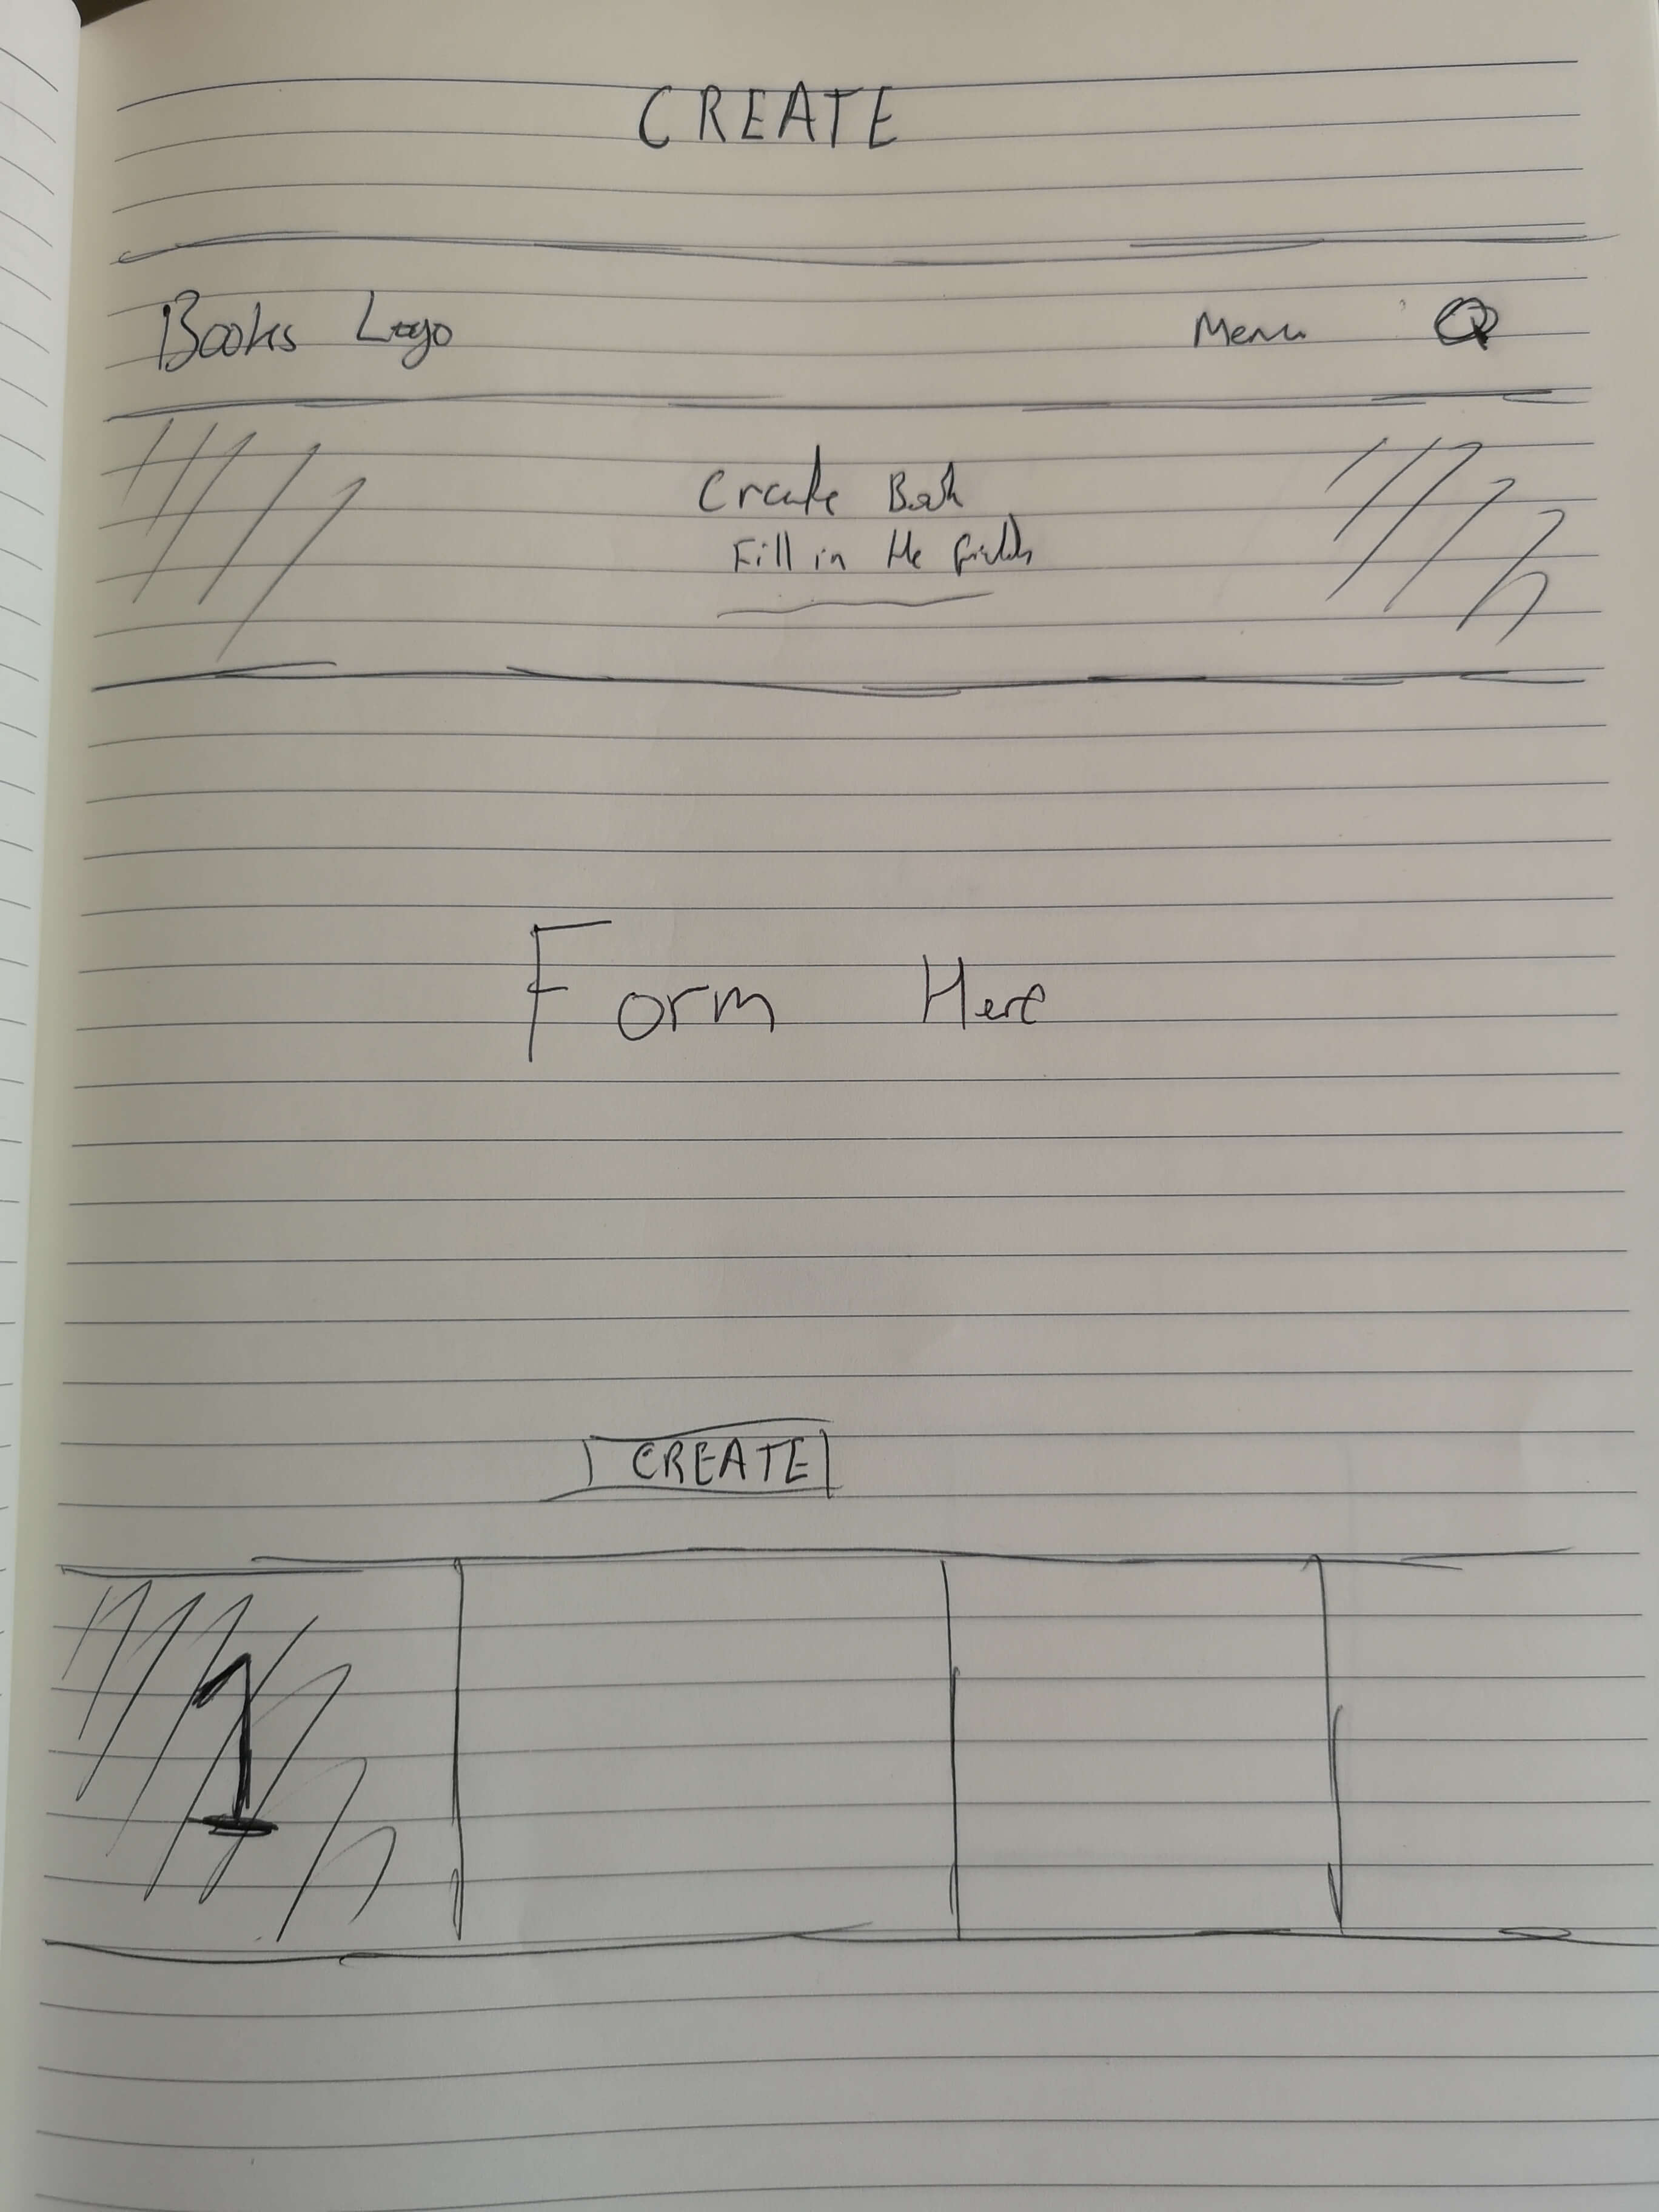 CREATE
Books Logo Menu Q
Create Book
Fill in the fields
Form Here
CREATE
1